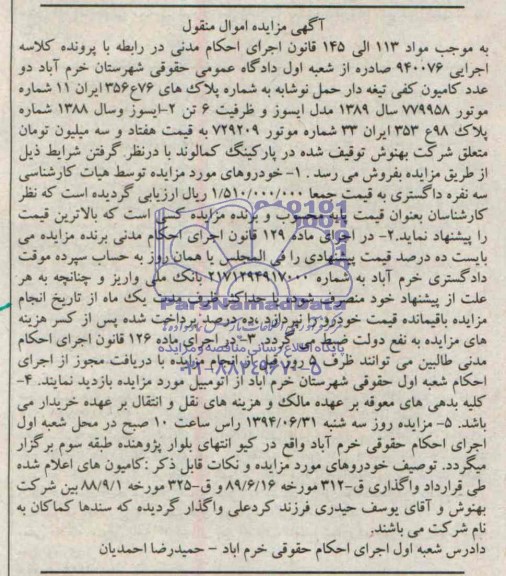 آگهی مزایده اموال منقول
به موجب مواد ۱۱۳ الی ۱۴۵ قانون اجرای احکام مدنی در رابطه با پرونده کلاسه
اجرایی ۹۴۰۰۷۶ صادره از شعبه اول دادگاه عمومی حقوقی شهرستان خرم آباد دو
عدد کامیون کفی تیغه دار حمل نوشابه به شماره پلاک های ۷۶ع۳۵۶ ایران ۱۱ شماره
موتور ۷۷۹۹۵۸ سال ۱۳۸۹ مدل ایسوز و ظرفیت ۶ تن ۲-ایسوز وسال ۱۳۸۸ شماره
پلاک ۹۸ع ۳۵۳ ایران ۳۳ شماره موتور ۷۲۹۲۰۹ به قیمت هفتاد و سه میلیون تومان
متعلق شرکت بهنوش توقیف شده در پارکینگ کمالوند با درنظر گرفتن شرایط ذیل
از طریق مزایده بفروش می رسد . ۱- خودروهای مورد مزایده توسط هیات کارشناسی
سه نفره داگستری به قیمت جمعا ۱/۵۱۰/۰۰۰/۰۰۰ ریال ارزیابی گردیده است که نظر
کارشناسان بعنوان قیمت پایه محسوب و برنده مزایده کسی است که بالاترین قیمت
را پیشنهاد نماید.۲- در اجرای ماده ۱۲۹ قانون اجرای احکام مدنی برنده مزایده می
بایست ده درصد قیمت پیشنهادی را فی المجلس یا همان روز به حساب سپرده موقت
دادگستری خرم آباد به شماره ۲۱۷۱۲۹۴۹۱۷۰۰۰ بانک ملی واریز و چنانچه به هر
علت از پیشنهاد خود منصرف شود یا حداکثر ظرف مدت یک ماه از تاریخ انجام
مزایده باقیمانده قیمت خودرو را نپردازد ده درصد پرداخت شده پس از کسر هزینه
های مزایده به نفع دولت ضبط می گردد. ۳- در اجرای ماده ۱۲۶ قانون اجرای احکام
مدنی طالبین می توانند ظرف ۵ روز قبل از انجام مزایده با دریافت مجوز از اجرای
احکام شعبه اول حقوقی شهرستان خرم آباد از اتومبیل مورد مزایده بازدید نمایند. ۴-
کلیه بدهی های معوقه بر عهده مالک و هزینه های نقل و انتقال بر عهده خریدار می
باشد. ۵- مزایده روز سه شنبه ۱۳۹۴/۰۶/۳۱ راس ساعت ۱۰ صبح در محل شعبه اول
اجرای احکام حقوقی خرم آباد واقع در کیو انتهای بلوار پژوهنده طبقه سوم برگزار
میگردد. توصیف خودروهای مورد مزایده و نکات قابل ذکر :کامیون های اعلام شده
طی قرارداد واگذاری ق-۳۱۲ مورخه ۸۹/۶/۱۶ و ق-۳۲۵ مورخه ۸۸/۹/۱ بین شرکت
بهنوش و آقای یوسف حیدری فرزند کردعلی واگذار گردیده که سندها کماکان به
نام شرکت می باشند.
دادرس شعبه اول اجرای احکام حقوقی خرم اباد - حمیدرضا احمدیان
ParsNamadData
پایگاه اطلاع رسانی مناقصه و مزایده
۰۲۱-۸۸۳۴۹۶۷۰-۵